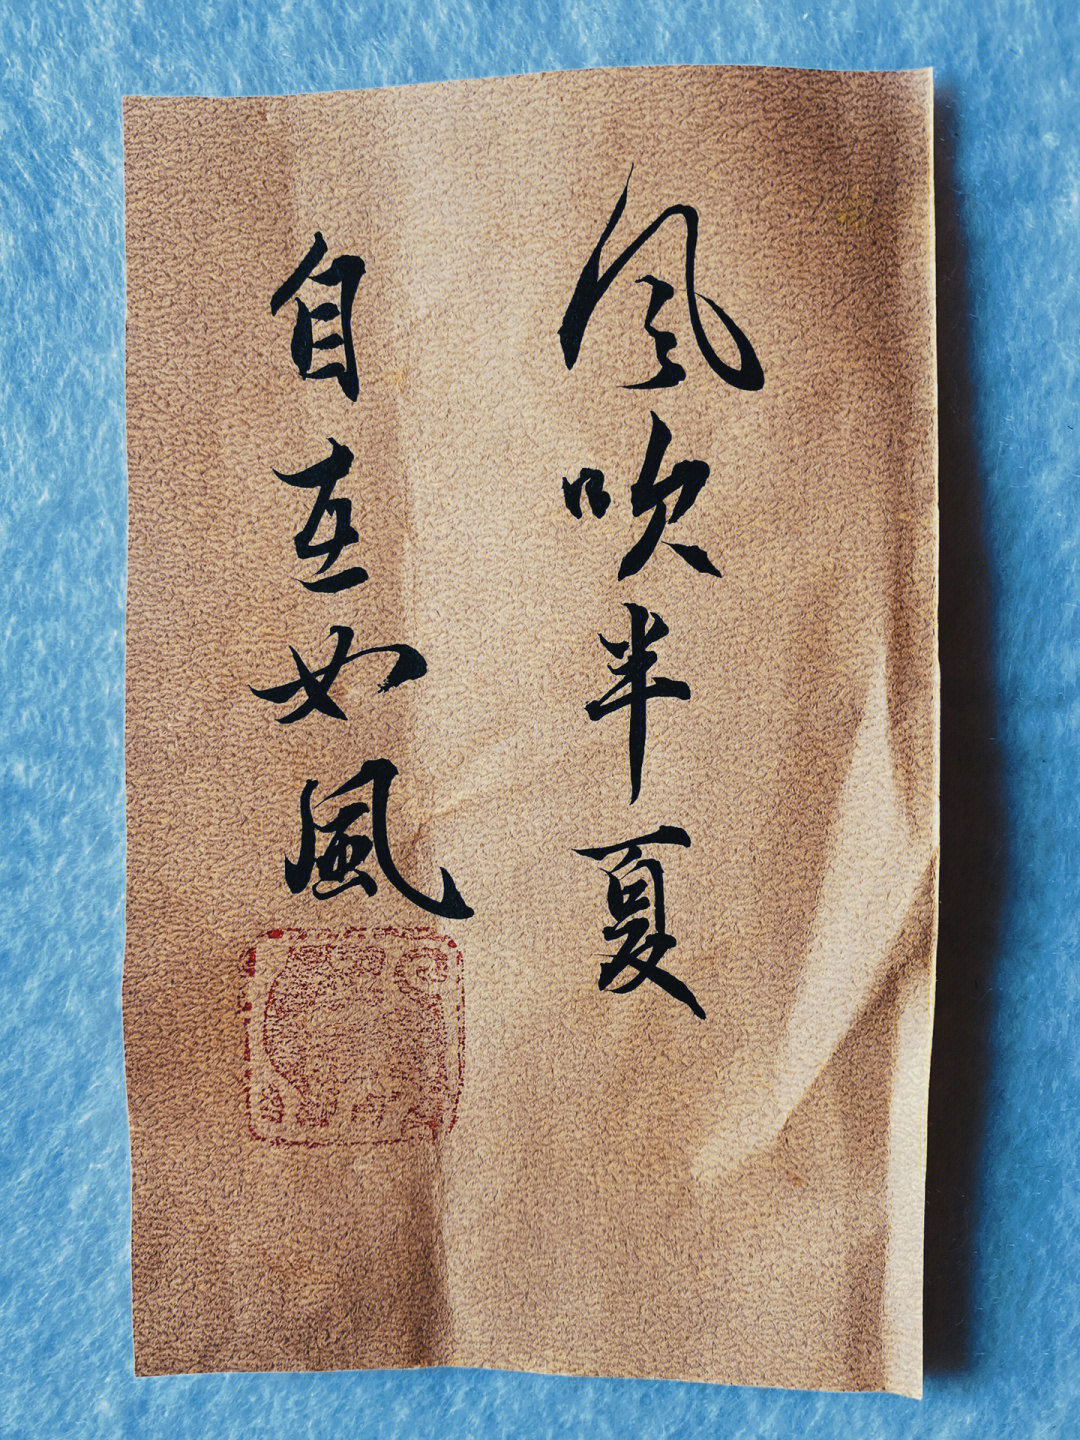 風吹半夏
自在如風